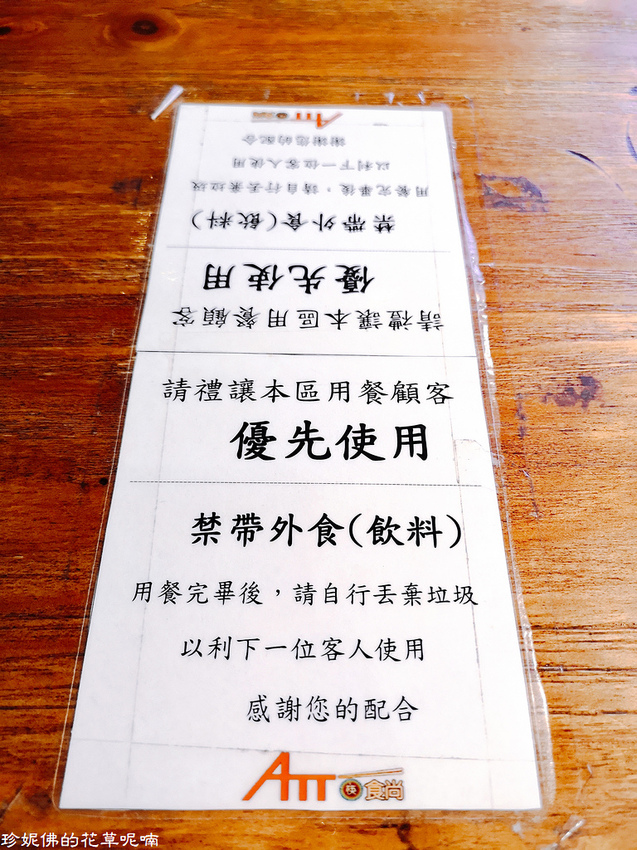 ATT 筷食尚
感謝您的配合
以利下一位客人使用
用餐完畢後，請自行丟棄垃圾
禁帶外食(飲料)
優先使用
請禮讓本區用餐顧客
請禮讓本區用餐顧客
優先使用
禁帶外食(飲料)
用餐完畢後，請自行丟棄垃圾
以利下一位客人使用
感謝您的配合
ATT 筷食尚
珍妮佛的花草呢喃